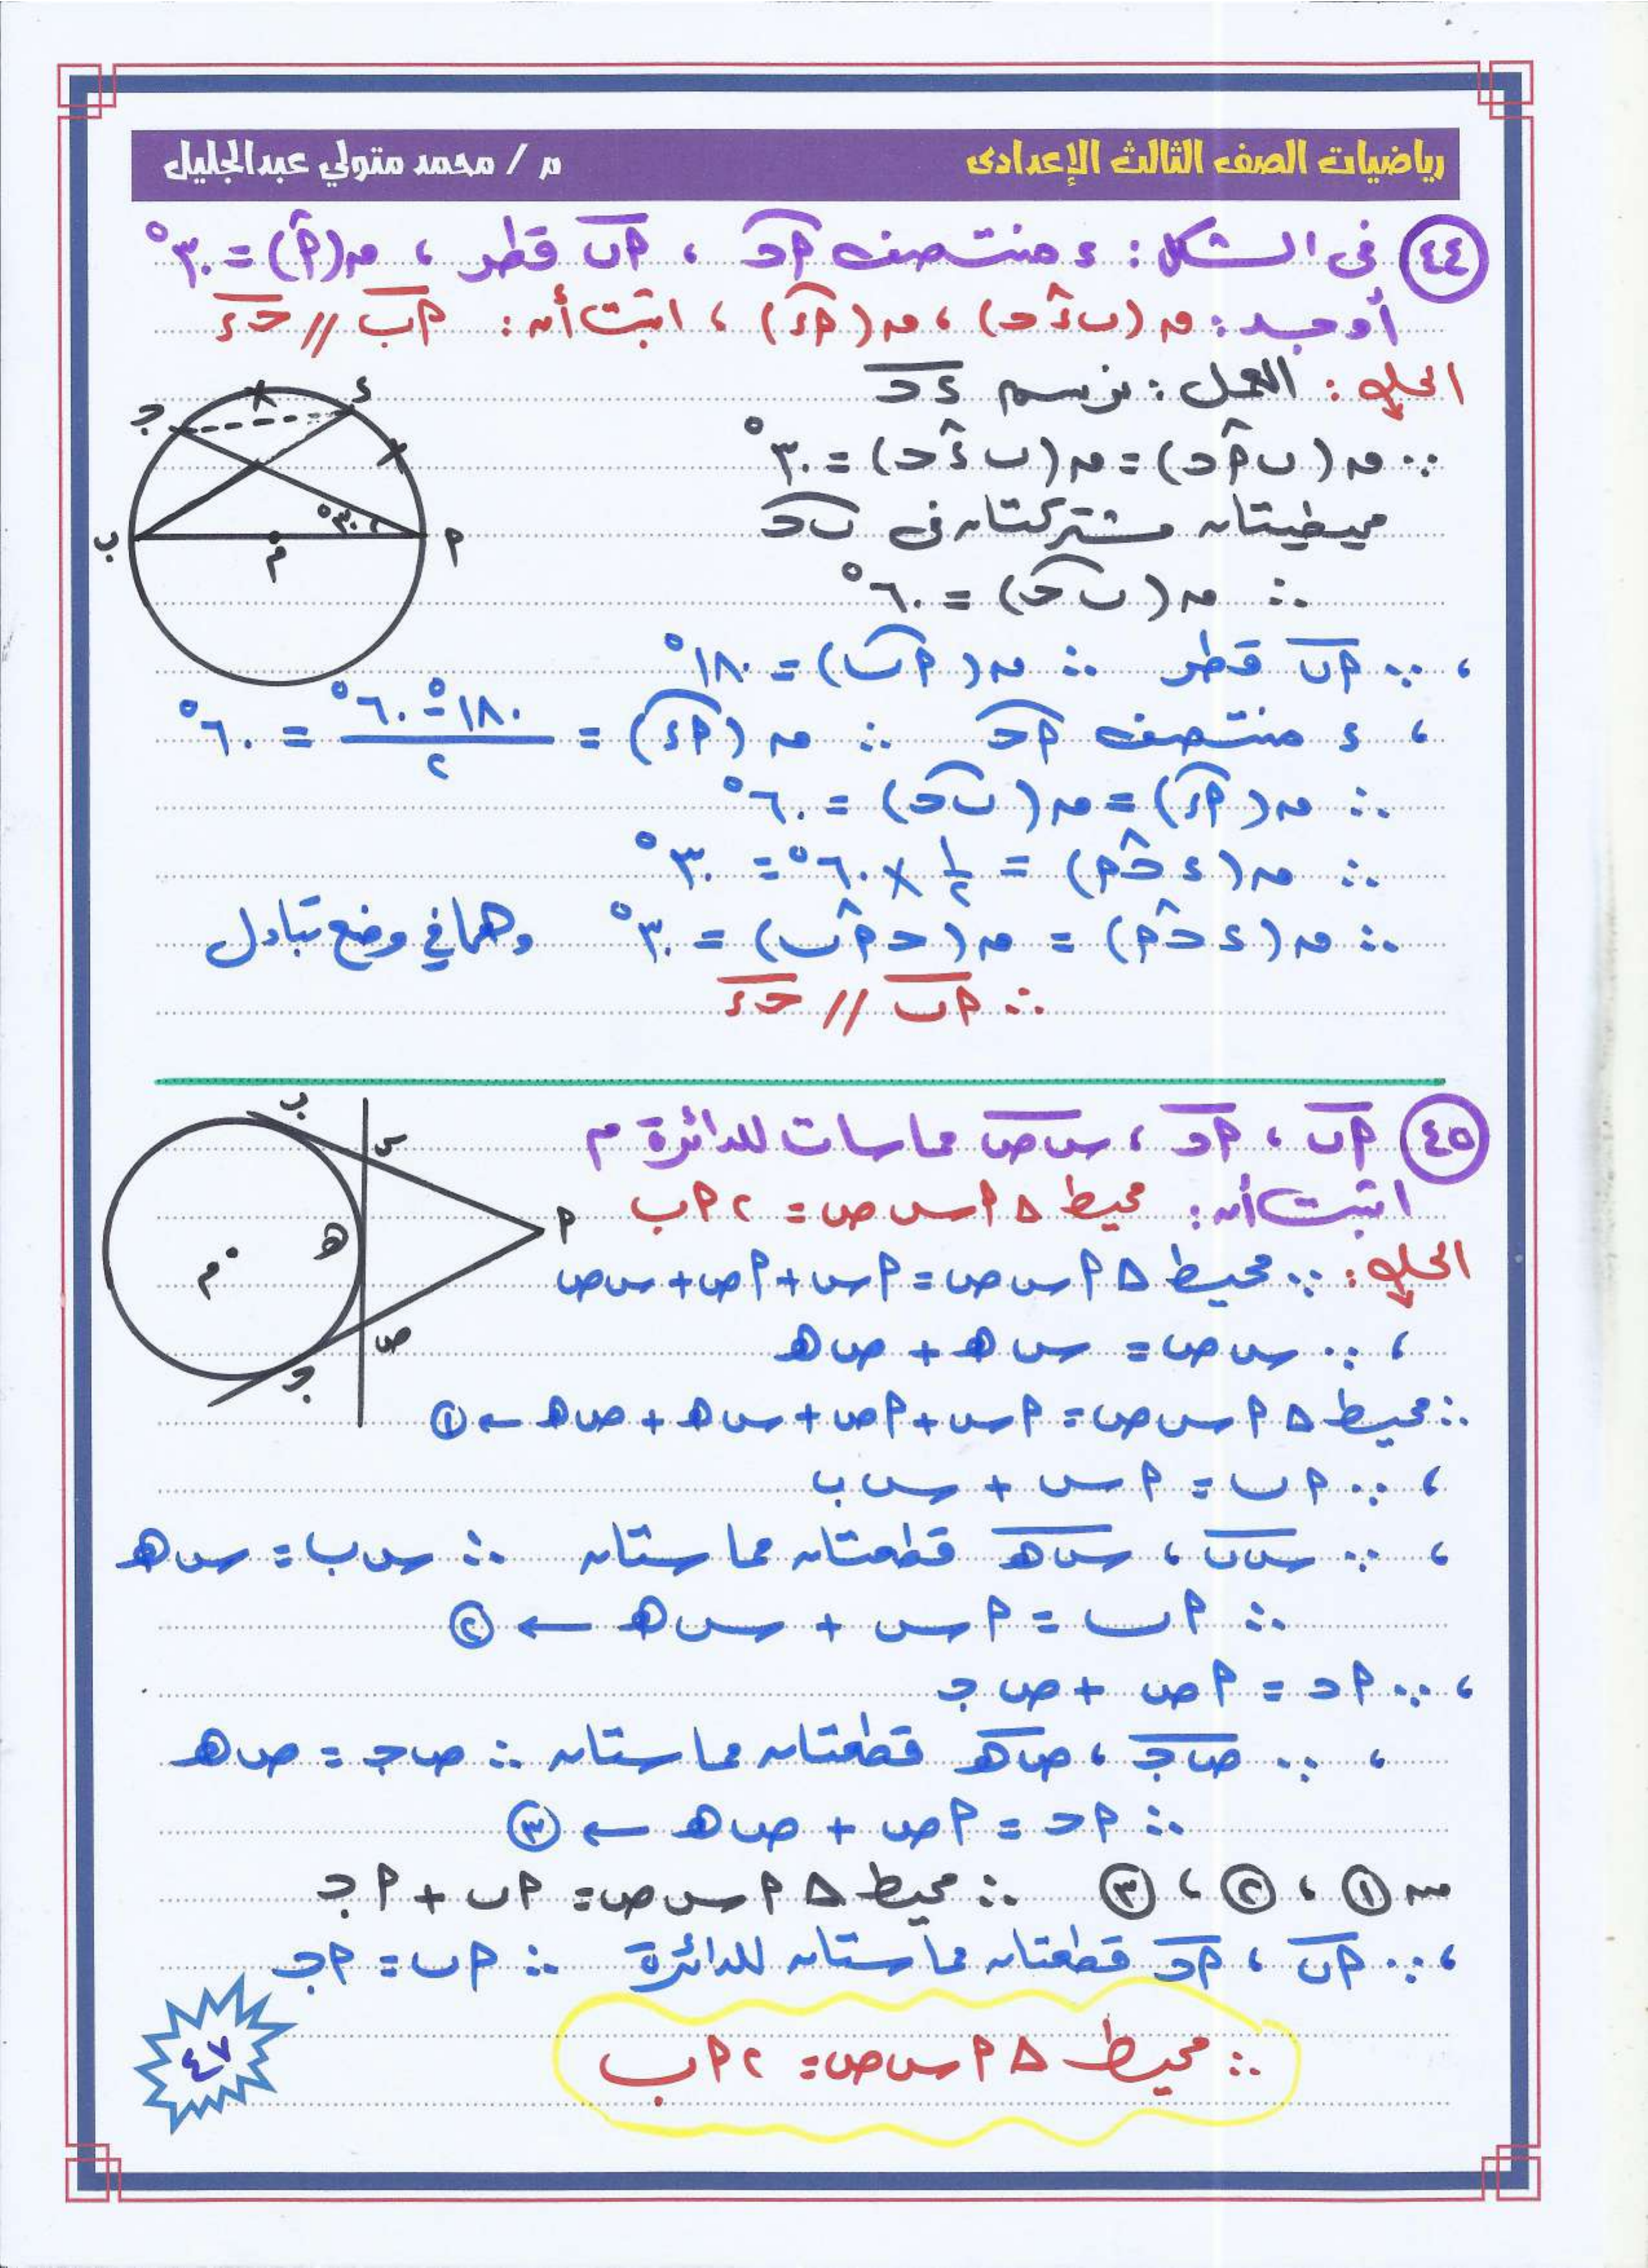 رياضيات الصف الثالث الإعدادى
م / محمد متولي عبدالجليل
٤٤ فى الشكل : ء منتصف أحـ ، أب قطر ، ق(أ) = ٣٠°
أوجد : ق(ب ء حـ) ، ق(أء) ، اثبت أن : أب // حـ ء
الحل : العمل : نرسم ء حـ
∵ ق(ب أ حـ) = ق(ب ء حـ) = ٣٠°
محيطيتان مشتركتان فى ب حـ
∴ ق(ب حـ) = ٦٠°
، ∵ أب قطر ∴ ق(أب) = ١٨٠°
، ء منتصف أحـ ∴ ق(أء) = (١٨٠° - ٦٠°) / ٢ = ٦٠°
∴ ق(أء) = ق(ب حـ) = ٦٠°
∴ ق(ء حـ أ) = ١/٢ × ٦٠° = ٣٠°
∴ ق(ء حـ أ) = ق(حـ أ ب) = ٣٠° وهما في وضع تبادل
∴ أب // حـ ء
ء
جـ
٣٠°
ب
م
أ
٤٥ أب ، أحـ ، س ص مماسات للدائرة م
اثبت أن : محيط Δ أ س ص = ٢ أ ب
الحل : ∵ محيط Δ أ س ص = أس + أص + س ص
، ∵ س ص = س هـ + ص هـ
∴ محيط Δ أ س ص = أس + أص + س هـ + ص هـ ← ①
، ∵ أب = أس + س ب
، ∵ س ب ، س هـ قطعتان مماستان ∴ س ب = س هـ
∴ أب = أس + س هـ ← ②
، ∵ أحـ = أص + ص جـ
، ∵ ص جـ ، ص هـ قطعتان مماستان ∴ ص جـ = ص هـ
∴ أحـ = أص + ص هـ ← ③
من ① ، ② ، ③ ∴ محيط Δ أ س ص = أب + أجـ
، ∵ أب ، أحـ قطعتان مماستان للدائرة ∴ أب = أجـ
∴ محيط Δ أ س ص = ٢ أ ب
ب
س
أ
هـ
م
ص
جـ
٤٧